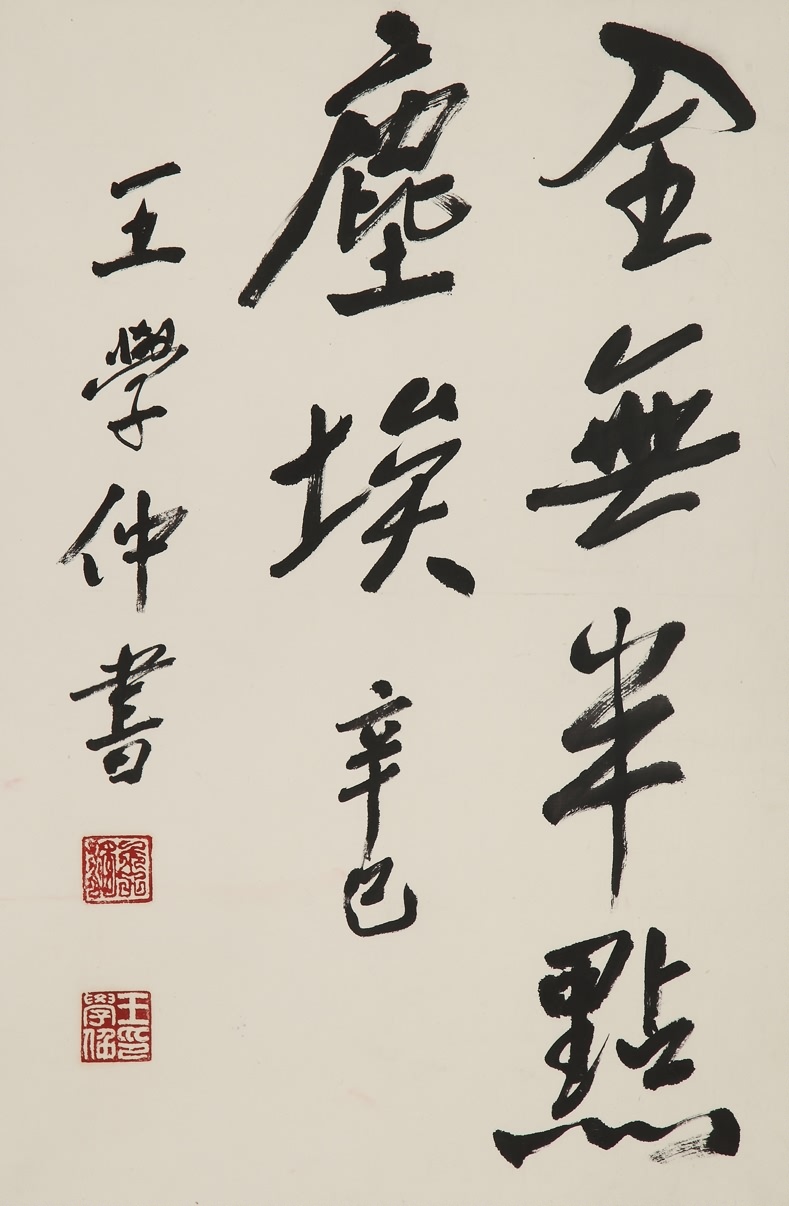 全無半點
塵埃 辛巳
王學仲書
王學仲印